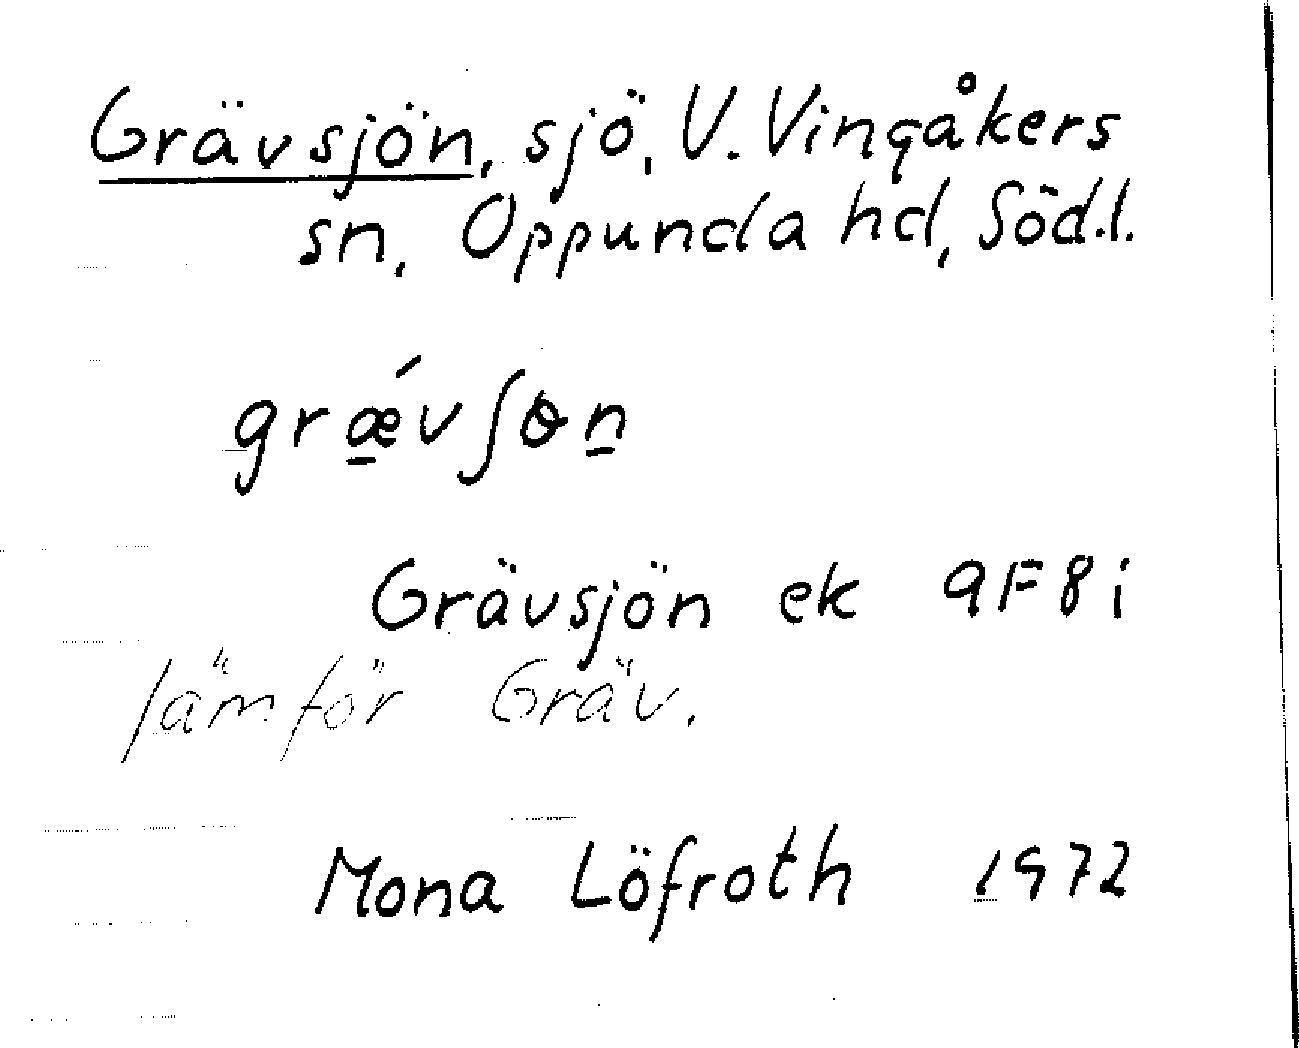 Grävsjön, sjö, V. Vingåkers
sn, Oppunda hd, Söd.l.
grǽ̱vʃɵṉ
Grävsjön ek 9F8i
Jämför Gräv.
Mona Löfroth 1972